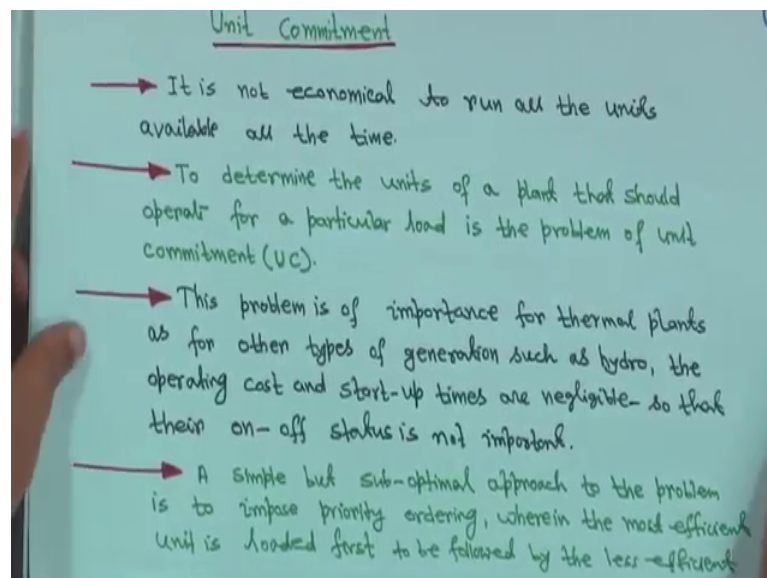 Unit Commitment
It is not economical to run all the units
available all the time.
To determine the units of a plant that should
operate for a particular load is the problem of unit
commitment (UC).
This problem is of importance for thermal plants
as for other types of generation such as hydro, the
operating cost and start-up times are negligible so that
their on-off status is not important.
A simple but sub-optimal approach to the problem
is to impose priority ordering, wherein the most efficient
unit is loaded first to be followed by the less efficient